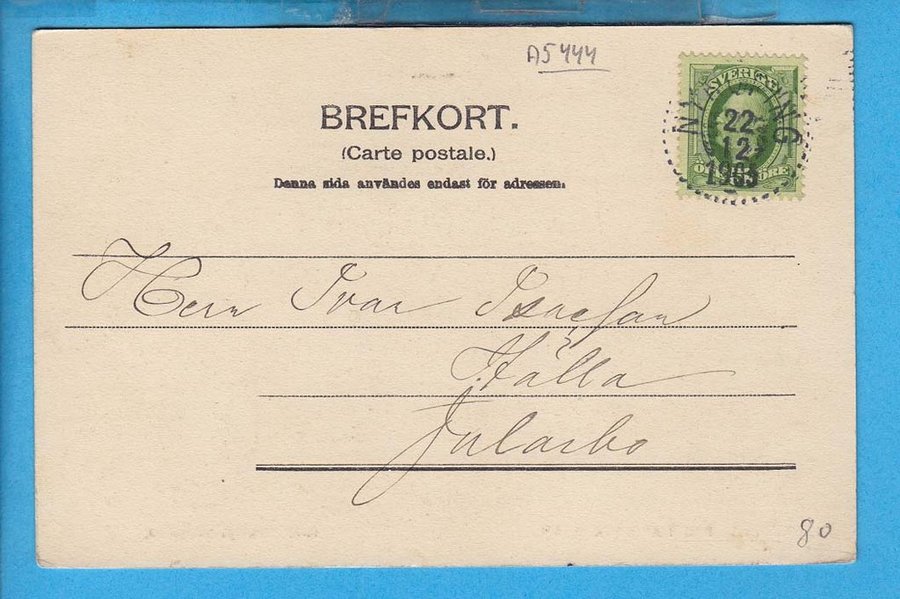 A5444
BREFKORT.
(Carte postale.)
Denna sida användes endast för adressen.
SVERIGE
22
12
1903
ÖRE
Herr Ivar
Hälla
Jularbo
80